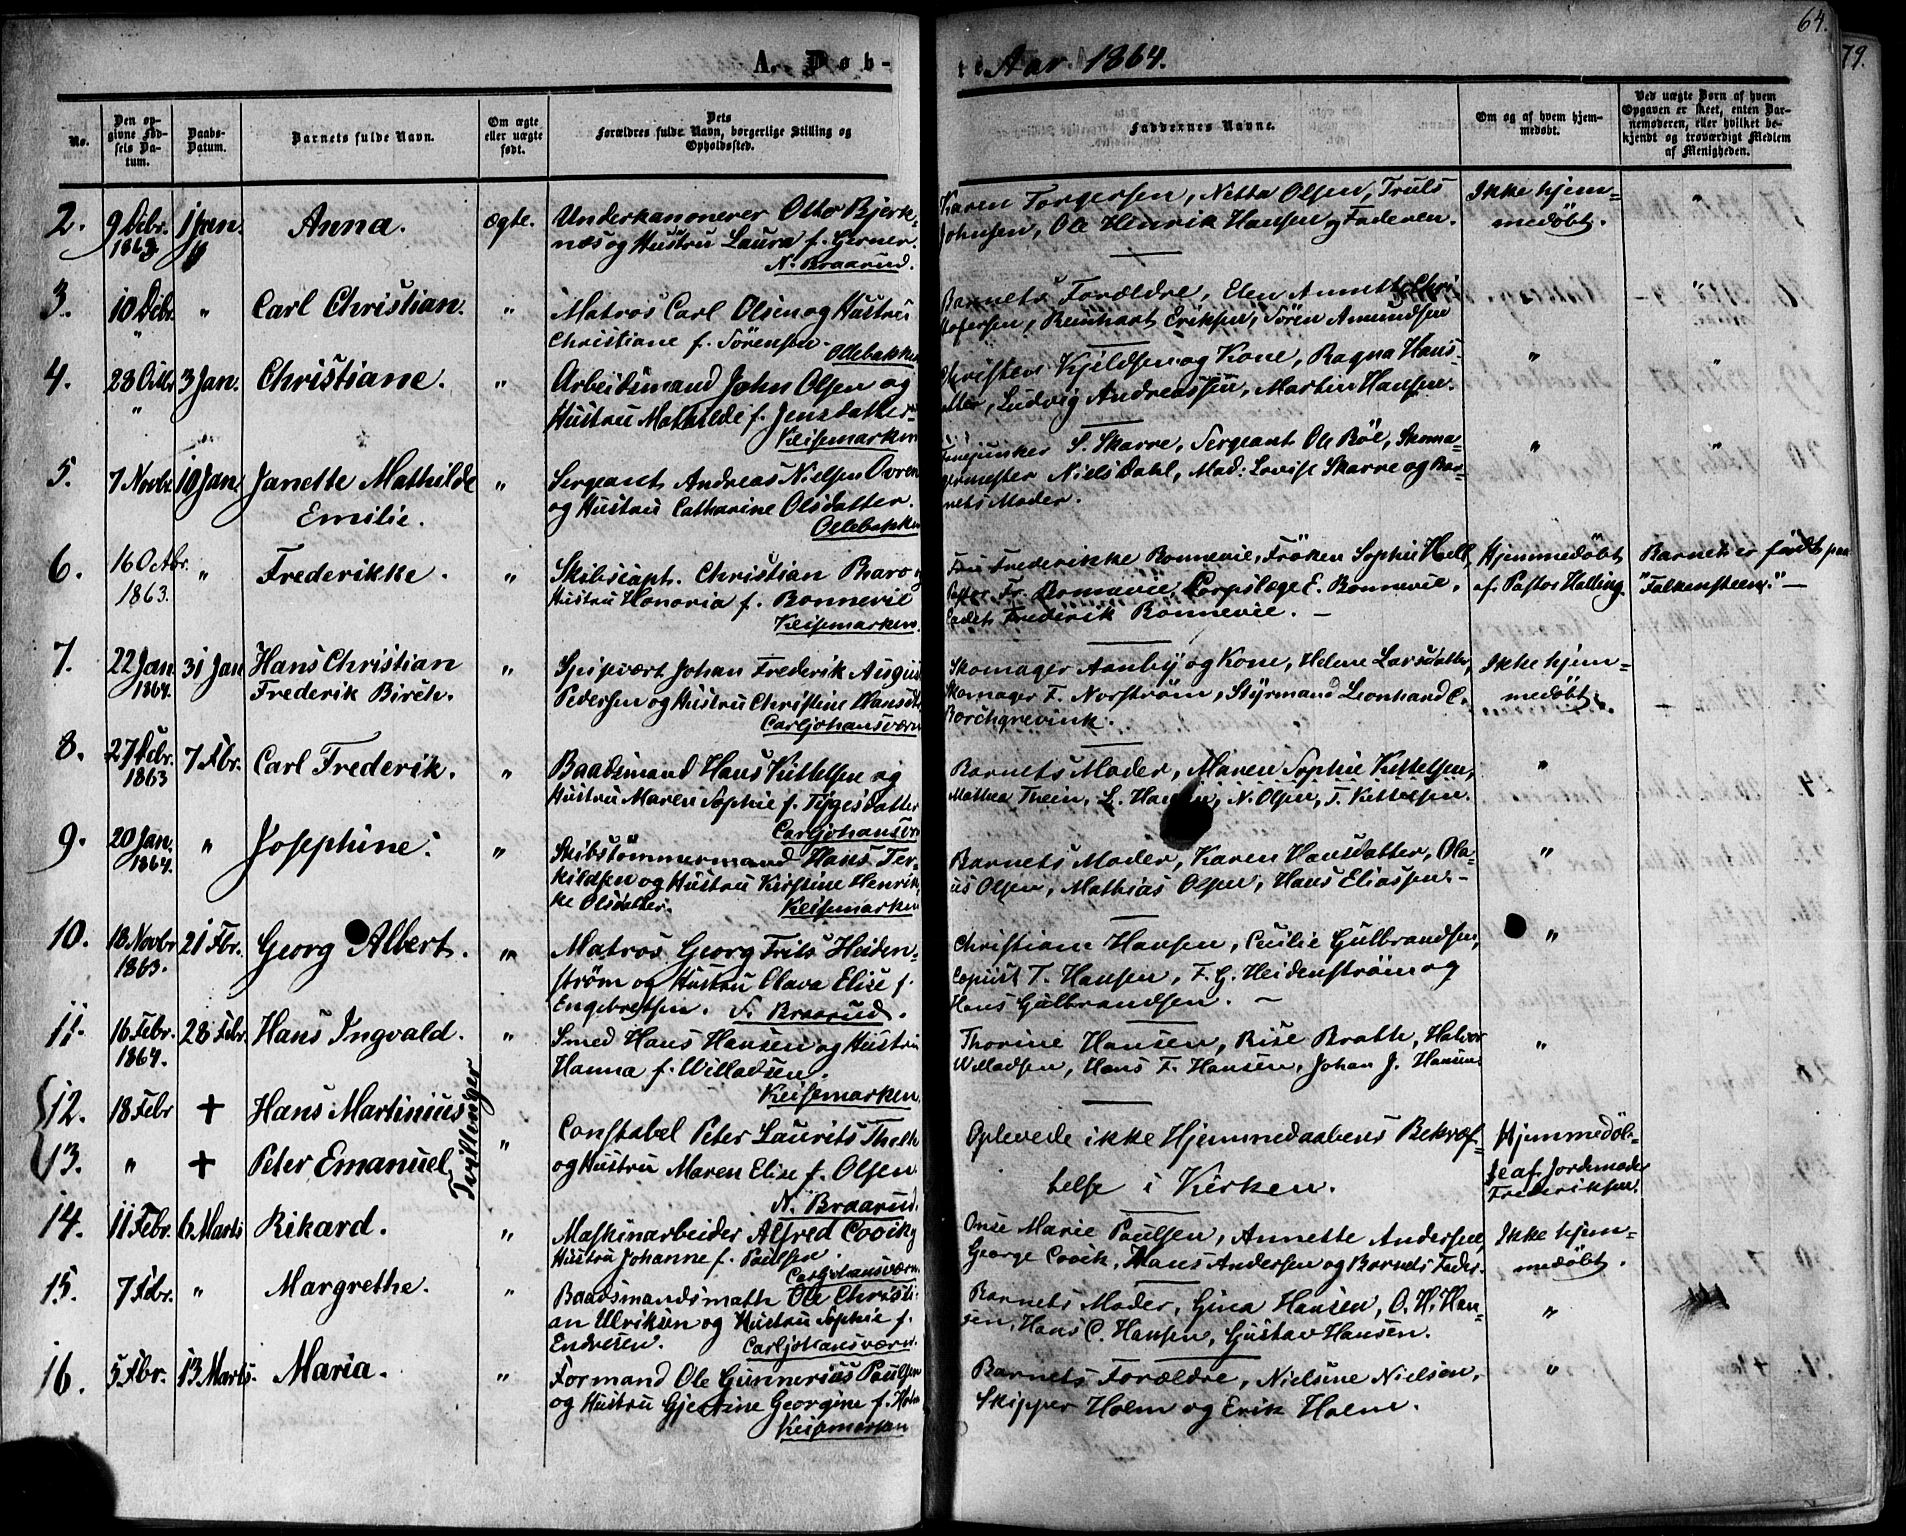 64.
79.
A. Døb-
te Aar 1864.
No.
Den opgivne Fødsels Datum.
Daabs-Datum.
Barnets fulde Navn.
Om ægte eller uægte født.
Dets Forældres fulde Navn, borgerlige Stilling og Opholdssted.
Faddernes Navne.
Om og af hvem hjemmedøbt.
Ved uægte Børn af hvem Opgaven er skeet, enten Barnemoderen, eller hvilket bekjendt og troværdigt Medlem af Menigheden.
2. 9 Debr. 1863 1 Jan. Anna. ægte.
Underkanonerer Otter Bjerk-
næs og Hustru Laura f. Gerner.
N. Braarud.
Karen Torgersen, Netta Olsen, Truls
Johnsen, Ole Henrik Hansen og Faderen.
Ikke hjem-
medøbt.
3. 10 Debr. " " Carl Christian. "
Matros Carl Olsen og Hustru
Christiane f. Sörensen.
Ollebakken
Barnets Forældre, Elen Annette Chri
stofersen, Reinhart Eriksen, Sören Amundsen
"
4. 28 Octbr " 3 Jan. Christiane. "
Arbeidsmand John Olsen og
Hustru Mathilde f. Jensdatter.
Keisemarken
Christen Kjeldsen og Kone, Ragna Hans-
datter, Ludvig Andreassen, Martin Hansen.
" "
5. 7 Novbr 10 Jan. Janette Mathilde
Emilie. "
Sergeant Andreas Nielsen Ovren
og Hustru Catharine Olsdatter.
Ollebakken
S. Skarre, Sergeant Ole Röe, Skoma-
germester Niels Dahl, Mad: Lovise Skarre og Bar-
nets Moder.
" "
6. 16 Octbr. 1863. " Frederikke. "
Skibscapt. Christian Baro og
Hustru Honoria f. Bonnevie
Keisemarken.
Fru Frederikke Bonnevie, Fröken Sophie Hall,
Pastor Fr. Bonnevie, Corpslæge E. Bonnevie,
Cadet Frederik Bonnevie. —
Hjemmedöbt
af Pastor Halling.
Barnet er født paa
"Falkensteen." —
7. 22 Jan. 1864. 31 Jan Hans Christian
Frederik Birch. "
Spisevært Johan Frederik August
Pedersen og Hustru Christine Hansdt.
Carljohansværn
Skomager Aanby og Kone, Helene Larsdatter,
Skomager F. Norström, Styrmand Leonhard C.
Borchgrevink.
Ikke hjem-
medøbt.
8. 27 Debr. 1863 7 Fbr. Carl Frederik. "
Baadsmand Hans Kittelsen og
Hustru Maren Sophie f. Tygesdatter
Carljohansv
Barnets Moder, Maren Sophie Kittelsen,
Mathea Thein, L. Hansen, N. Olsen, T. Kittelsen.
"
9. 20 Jan. 1864. " Josephine. "
Skibstömmermand Hans Ter-
kildsen og Hustru Kirstine Henrik-
ke Olsdatter. Keisemarken
Barnets Moder, Karen Hansdatter, Ola-
us Olsen, Mathias Olsen, Hans Eliassen. -
"
10. 18 Novbr 1863. 21 Fbr. Georg Albert. "
Matros Georg Frits Heiden-
ström og Hustru Olava Elise f.
Engebretsen. S. Braarud.
Christiane Hansen, Cecilie Gulbrandsen,
Copiist T. Hansen, F. G. Heidenström og
Hans Gulbrandsen. —
"
11. 16 Febr. 1864. 28 Febr. Hans Ingvald. "
Smed Hans Hansen og Hustru
Hanna f. Willadsen.
Keisemarken.
Thorine Hansen, Rise Brath, Halvor
Willadsen, Hans F. Hansen, Johan J. Hansen
"
12. 18 Febr + Hans Martinius
13. " + Peter Emanuel
Tvillinger "
Constabel Peter Laurits Tholte
og Hustru Maren Elise f. Olsen
N. Braarud.
Oplevede ikke Hjemmedaabens Bekræf-
telse i Kirken.
Hjemmedöb-
te af Jordemoder
Frederiksen.
14. 11 Febr. 6 Marts Rikard. "
Maskinarbeider Alfred Covik og
Hustru Johanne f. Paulsen.
Carljohansværn
Onse Marie Paulsen, Annette Andersen,
George Covik, Hans Andersen og Barnets Fader.
Ikke hjem-
medöbt.
15. 7 Fbr. " Margrethe. "
Baadsmandsmath Ole Christi-
an Ulriksen og Hustru Sophie f.
Endresen. Carljohansværn.
Barnets Moder, Gina Hansen, O. H. Han-
sen, Hans C. Hansen, Gustav Hansen.
"
16. 5 Fbr. 13 Marts. Maria. "
Formand Ole Gunnerius Paulsen
og Hustru Gjertine Georgine f. Holm
Keisemarken
Barnets Forældre, Nielsine Nielsen,
Skipper Holm og Erik Holm.
"